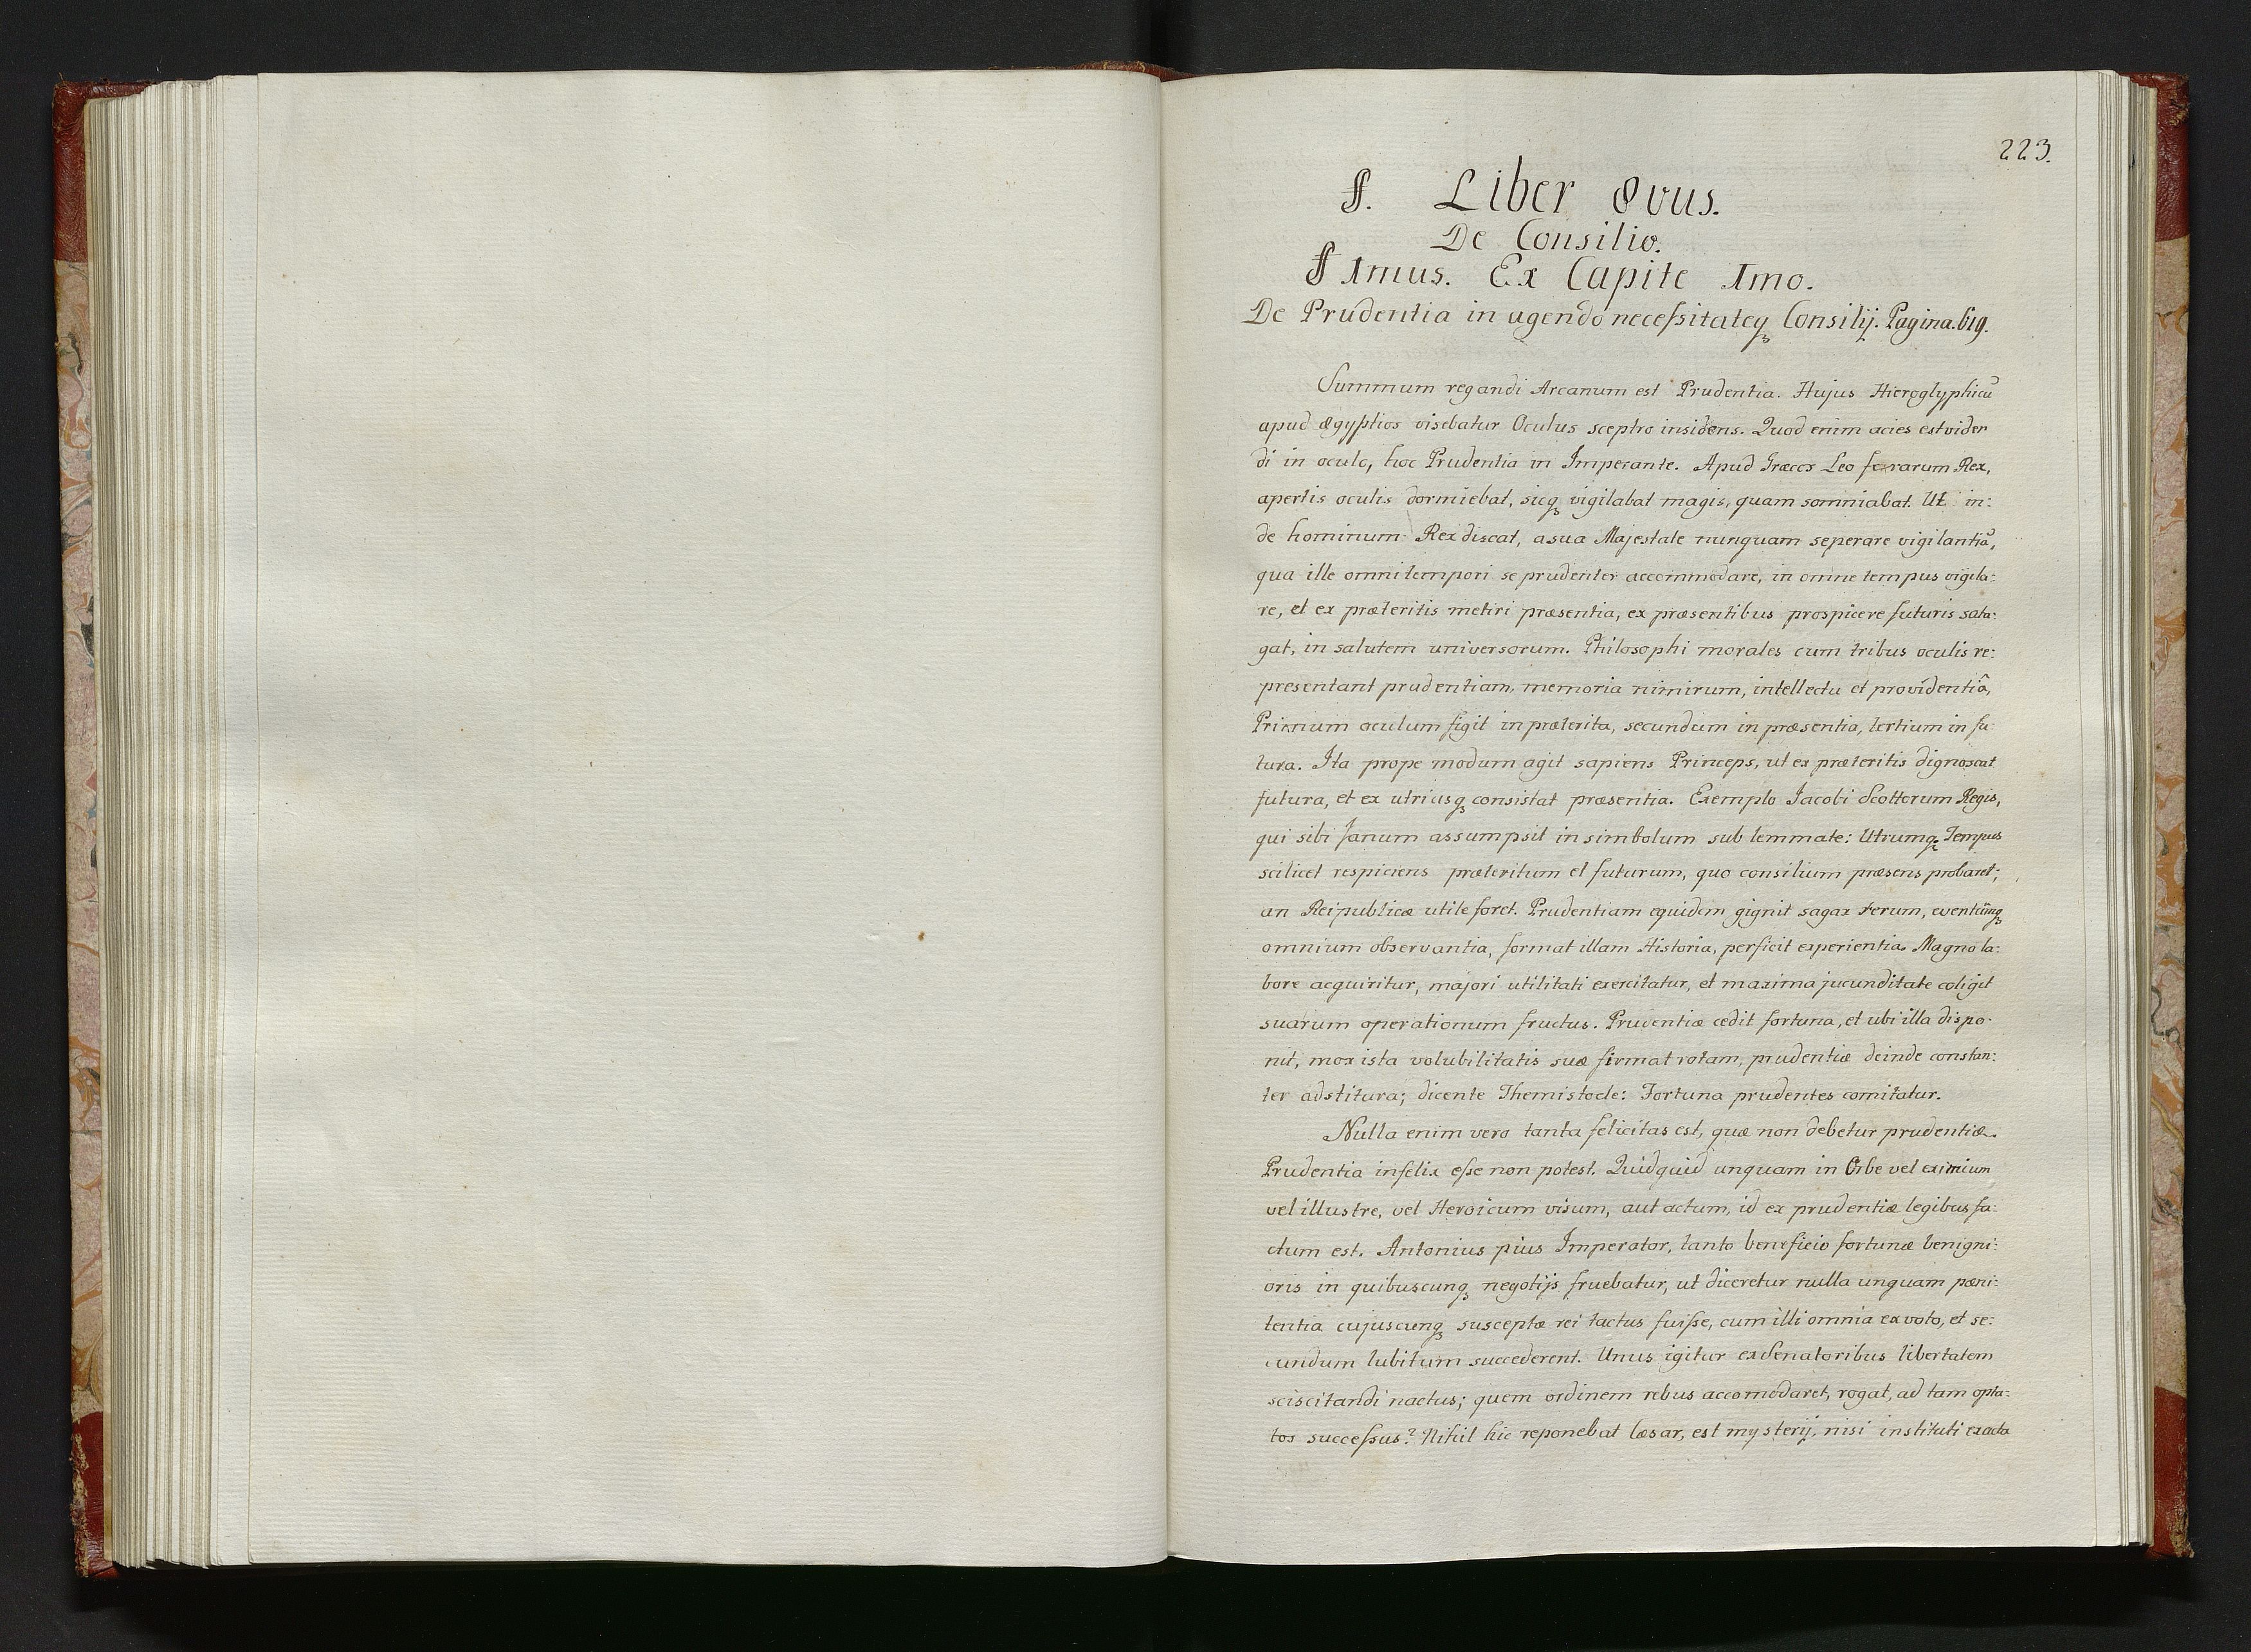 223.
§. Liber 8vus.
De Consilio.
§ 1mus. Ex Capite 1mo.
De Prudentia in agendo necessitateq₃ Consilij. Pagina. 619.
Summum regandi Arcanum est Prudentia. Hujus Hieroglyphicū
apud Ægyptios visebatur Oculus sceptro insidens. Quod enim acies est viden
di in oculo, hoc Prudentia in Imperante. Apud Græcos Leo ferarum Rex,
apertis oculis dormiebat, sicq₃ vigilabat magis, quam somniabat. Ut in:
de hominum Rex discat, a sua Majestate nunquam seperare vigilantiā,
qua ille omni tempori se prudenter accommodare, in omne tempus vigila:
re, et ex præteritis metiri præsentia, ex præsentibus prospicere futuris sata:
gat, in salutem universorum. Philosophi morales cum tribus oculis re:
presentant prudentiam, memoria nimirum, intellectu et providentiâ,
Primum oculum figit in præterita, secundum in præsentia, tertium in fu:
tura. Ita prope modum agit sapiens Princeps, ut ex præteritis dignoscat
futura, et ex utriusq₃ consistat præsentia. Exemplo Jacobi Scottorum Regis,
qui sibi Janum assumpsit in simbolum sub lemmate: Utrumq₃ Tempus
scilicet respiciens præteritum et futurum, quo consilium præsens probaret;
an Reipublicæ utile foret. Prudentiam equidem gignit sagax rerum, eventūnq₃
omnium observantia, format illam Historia, perficit experientia. Magno la:
bore acquiritur, majori utilitati exercitatur, et maxima jucunditate coligit
suarum operationum fructus. Prudentiæ cedit fortuna, et ubi illa dispo:
nit, mox ista volubilitatis suæ firmat rotam, prudentiæ deinde constan:
ter adstitura; dicente Themistocle: Fortuna prudentes comitatur.
Nulla enim vero tanta felicitas est, quæ non debetur prudentiæ.
Prudentia infelix esse non potest. Quidquid unquam in Orbe vel eximium
vel illustre, vel Heroicum visum, aut actum, id ex prudentiæ legibus fa:
ctum est. Antonius pius Imperator, tanto beneficio fortunæ benigni:
oris in quibuscunq₃ negotijs fruebatur, ut diceretur nulla unquam pœni:
tentia cujuscunq₃ susceptæ rei tactus fuisse, cum illi omnia ex voto, et se:
cundum lubitum succederent. Unus igitur ex Senatoribus libertatem
sciscitandi nactus; quem ordinem rebus accomodaret, rogat, ad tam opta:
tos successus? Nihil hic reponebat Cæsar, est mysterij, nisi instituti exacta